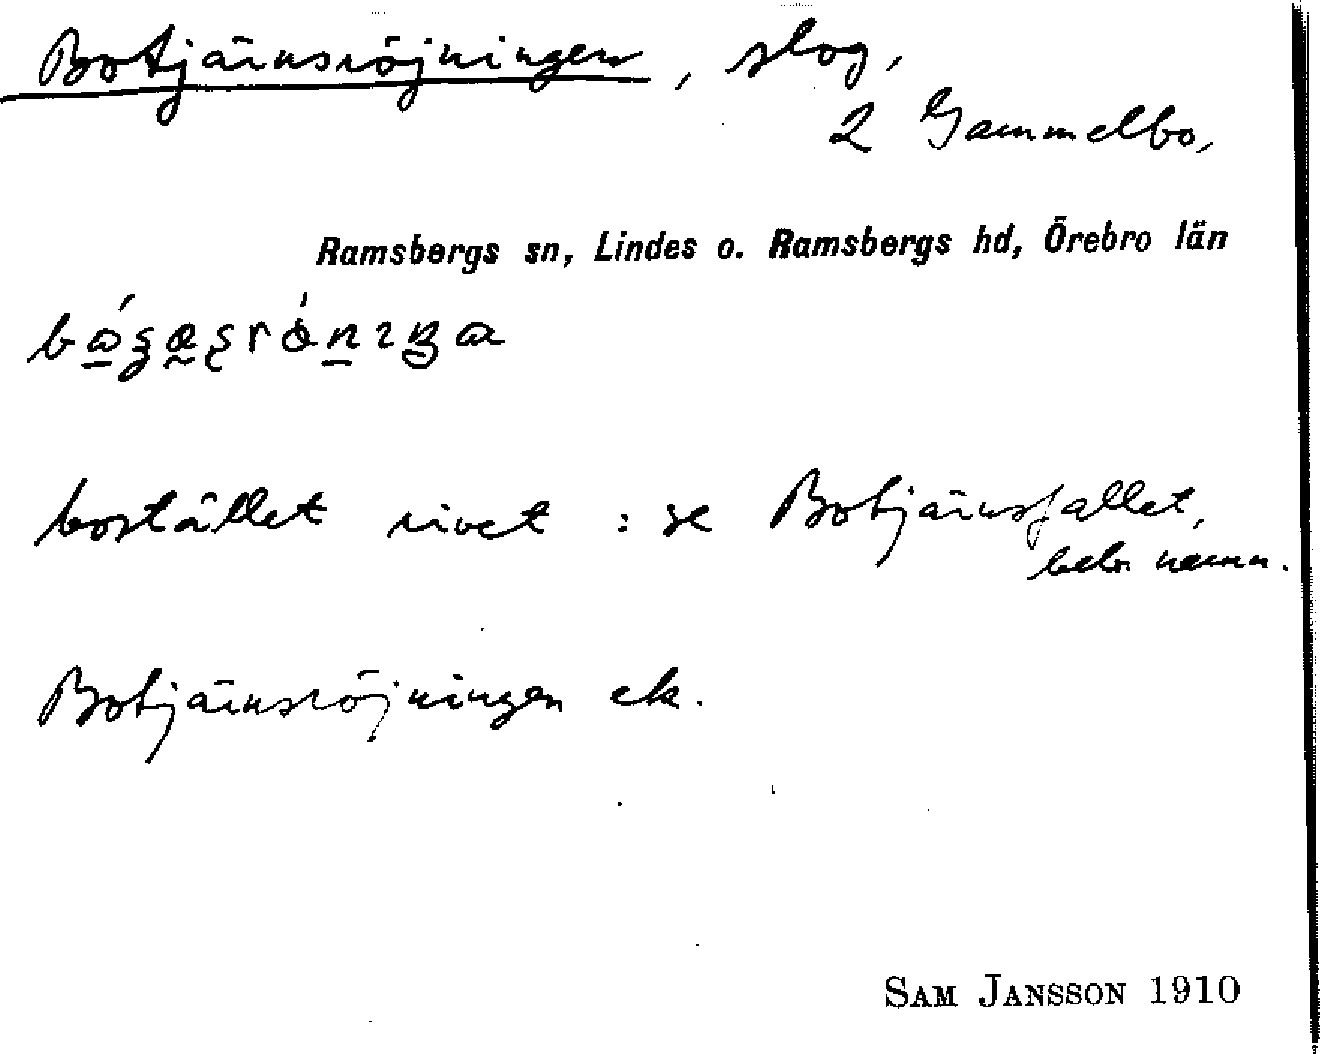 Botjärnsröjningen, slog,
2 Gammelbo,
Ramsbergs sn, Lindes o. Ramsbergs hd, Örebro län
bostället rivet : se Botjärnsfallet,
beb. namn.
Botjärnsröjningen ek.
SAM JANSSON 1910